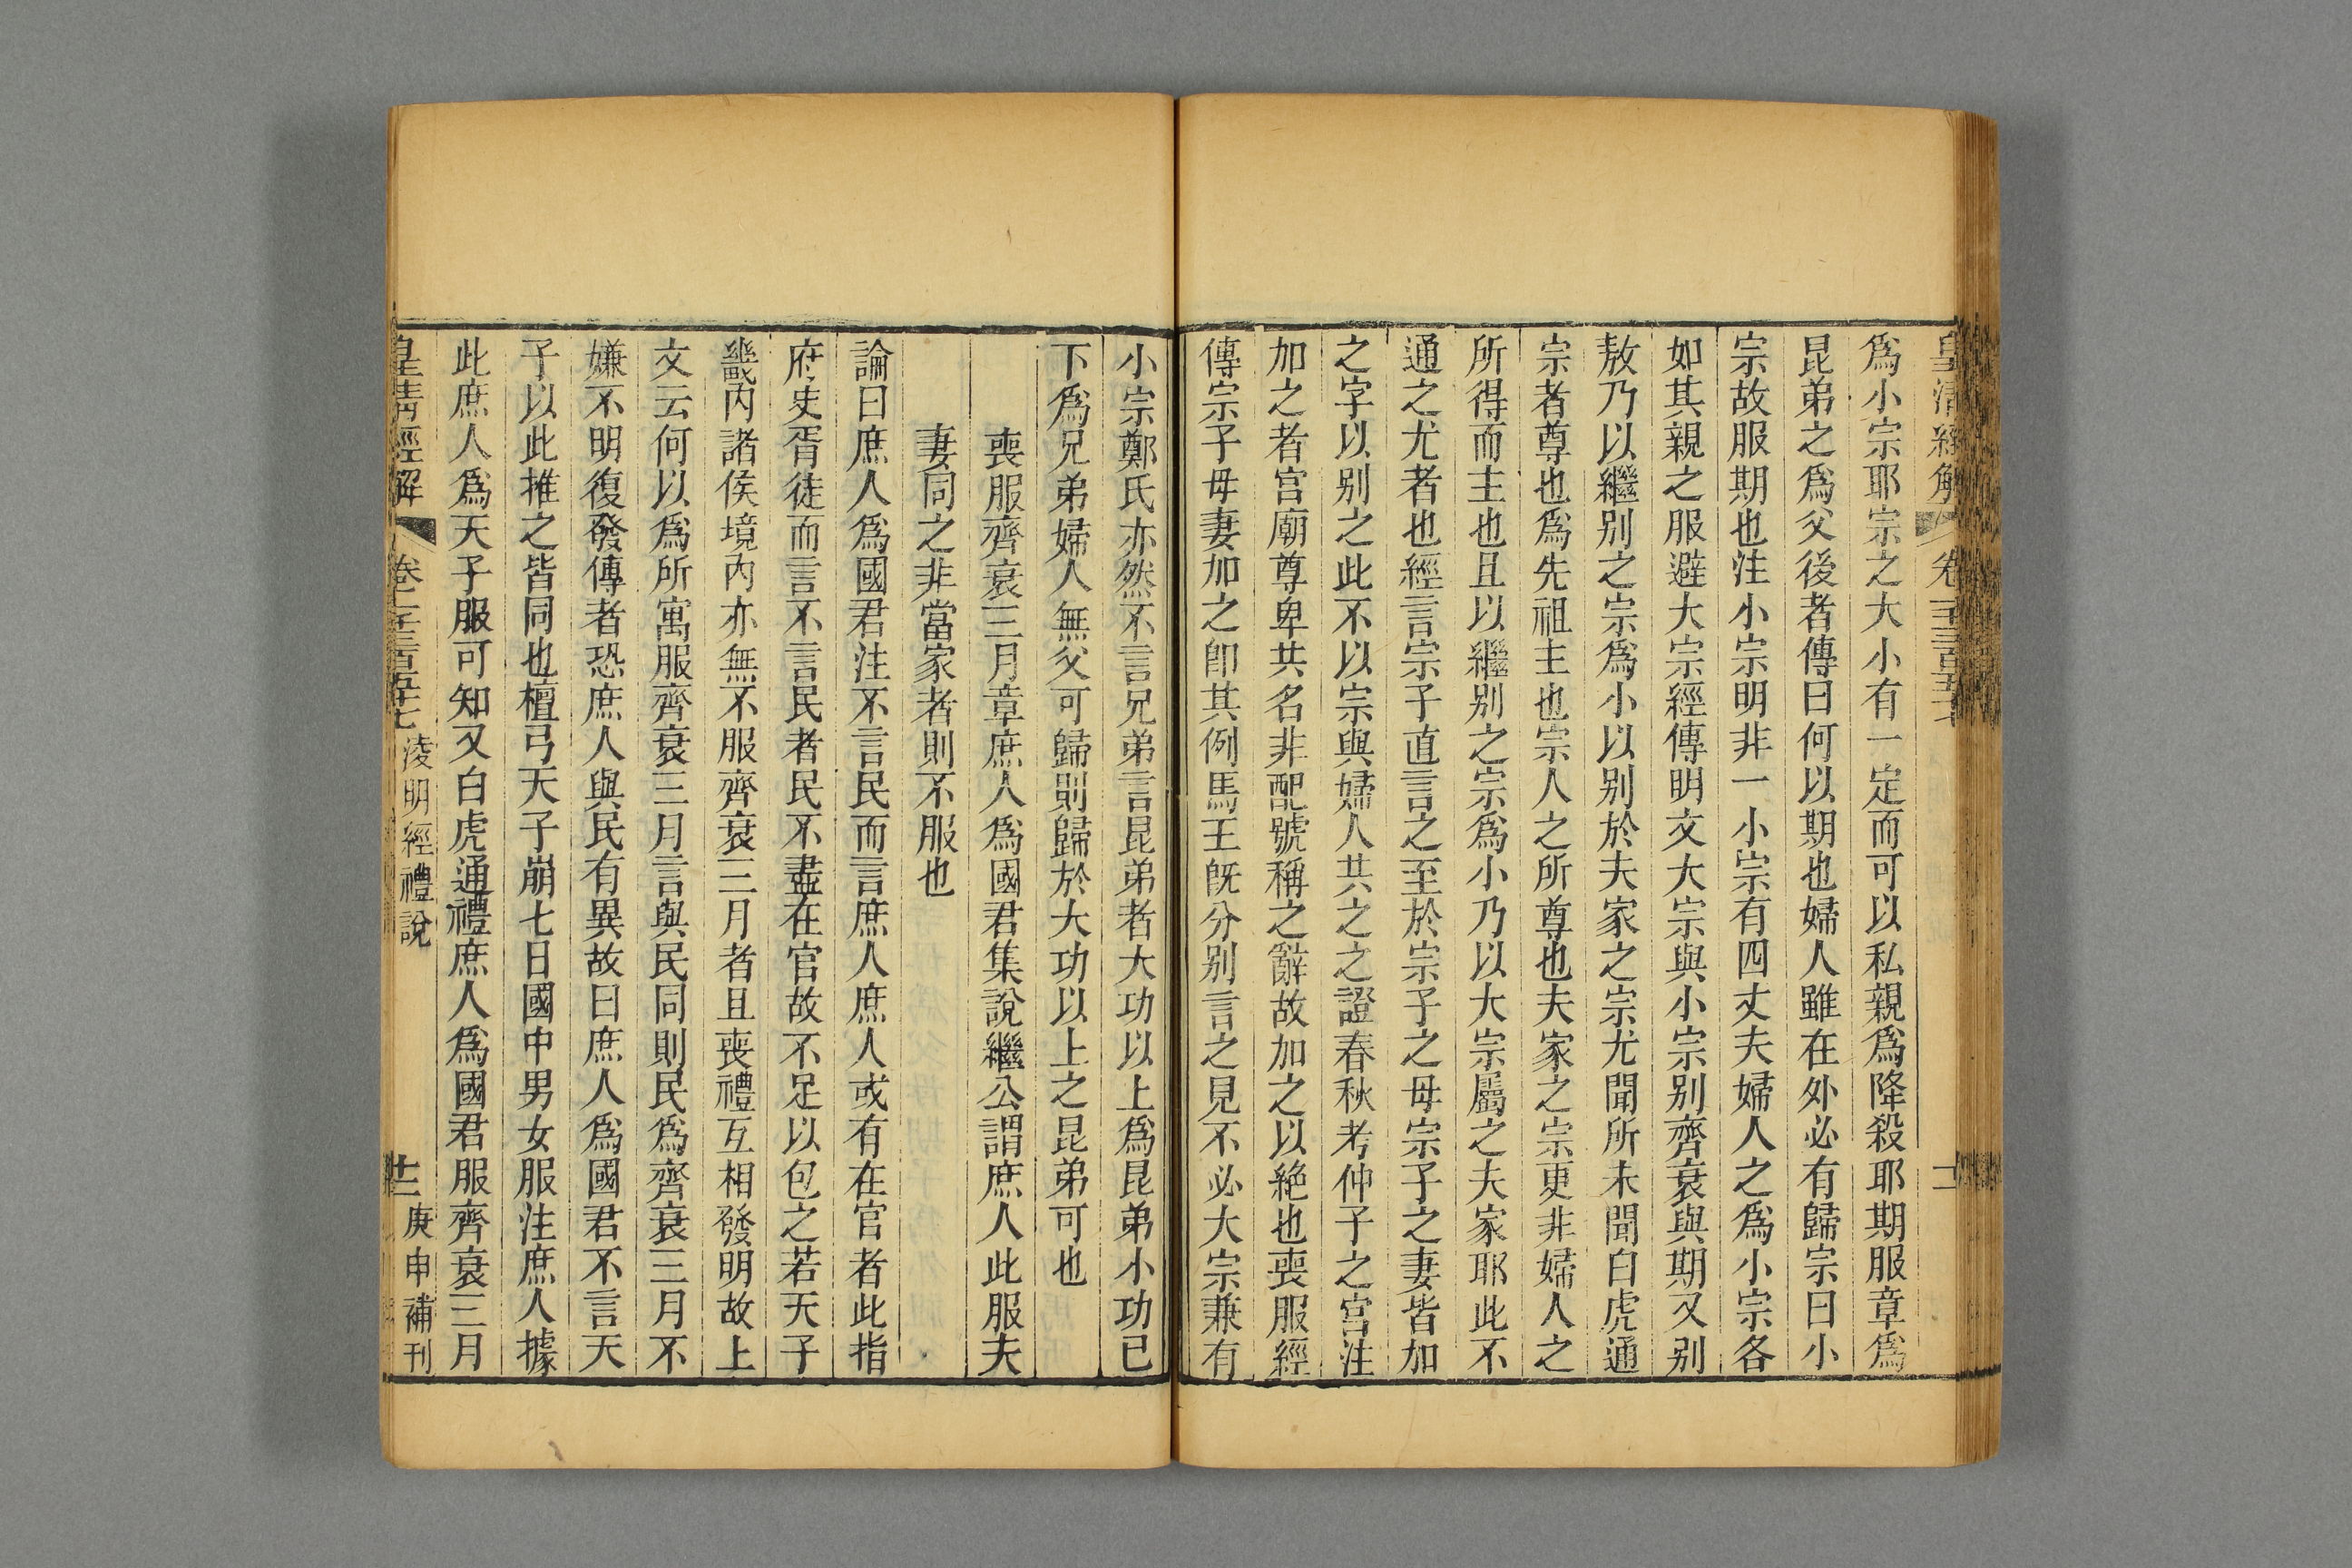 皇清經解 卷一千三百五十七 十一
爲小宗耶宗之大小有一定而可以私親爲降殺耶期服章爲
昆弟之爲父後者傳曰何以期也婦人雖在外必有歸宗曰小
宗故服期也注小宗明非一小宗有四丈夫婦人之爲小宗各
如其親之服避大宗經傳明文大宗與小宗别齊衰與期又别
敖乃以繼别之宗爲小以别於夫家之宗尤聞所未聞白虎通
宗者尊也爲先祖主也宗人之所尊也夫家之宗更非婦人之
所得而主也且以繼别之宗爲小乃以大宗屬之夫家耶此不
通之尤者也經言宗子直言之至於宗子之母宗子之妻皆加
之字以别之此不以宗與婦人共之之證春秋考仲子之宮注
加之者宫廟尊卑共名非配號稱之辭故加之以絶也喪服經
傳宗子母妻加之卽其例馬王旣分别言之見不必大宗兼有
小宗鄭氏亦然不言兄弟言昆弟者大功以上爲昆弟小功已
下爲兄弟婦人無父可歸則歸於大功以上之昆弟可也
喪服齊衰三月章庶人爲國君集說繼公謂庶人此服夫
妻同之非當家者則不服也
論曰庶人爲國君注不言民而言庶人庶人或有在官者此指
府史胥徒而言不言民者民不盡在官故不足以包之若天子
畿内諸侯境内亦無不服齊衰三月者且喪禮互相發明故上
文云何以爲所寓服齊衰三月言與民同則民爲齊衰三月不
嫌不明復發傳者恐庶人與民有異故曰庶人爲國君不言天
子以此推之皆同也檀弓天子崩七日國中男女服注庶人據
此庶人爲天子服可知又白虎通禮庶人爲國君服齊衰三月
皇清經解 卷一千三百五十七 淩明經禮說 十二 庚申補刊